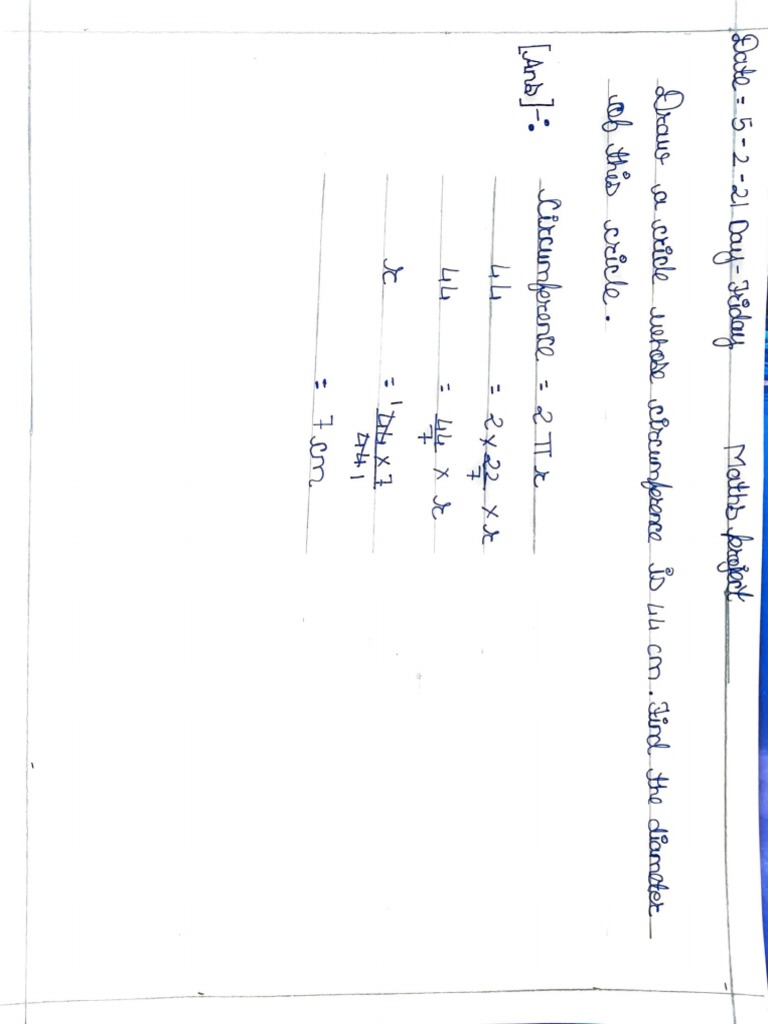 Date = 5 - 2 - 21 Day - Friday Maths project
Draw a cricle whose circumference is 44 cm. Find the diameter
of this cricle.
[Ans]-: Circumference = 2 π r
44 = 2 × 22/7 × r
44 = 44/7 × r
r = 1 44 × 7 / 44 1
= 7 cm